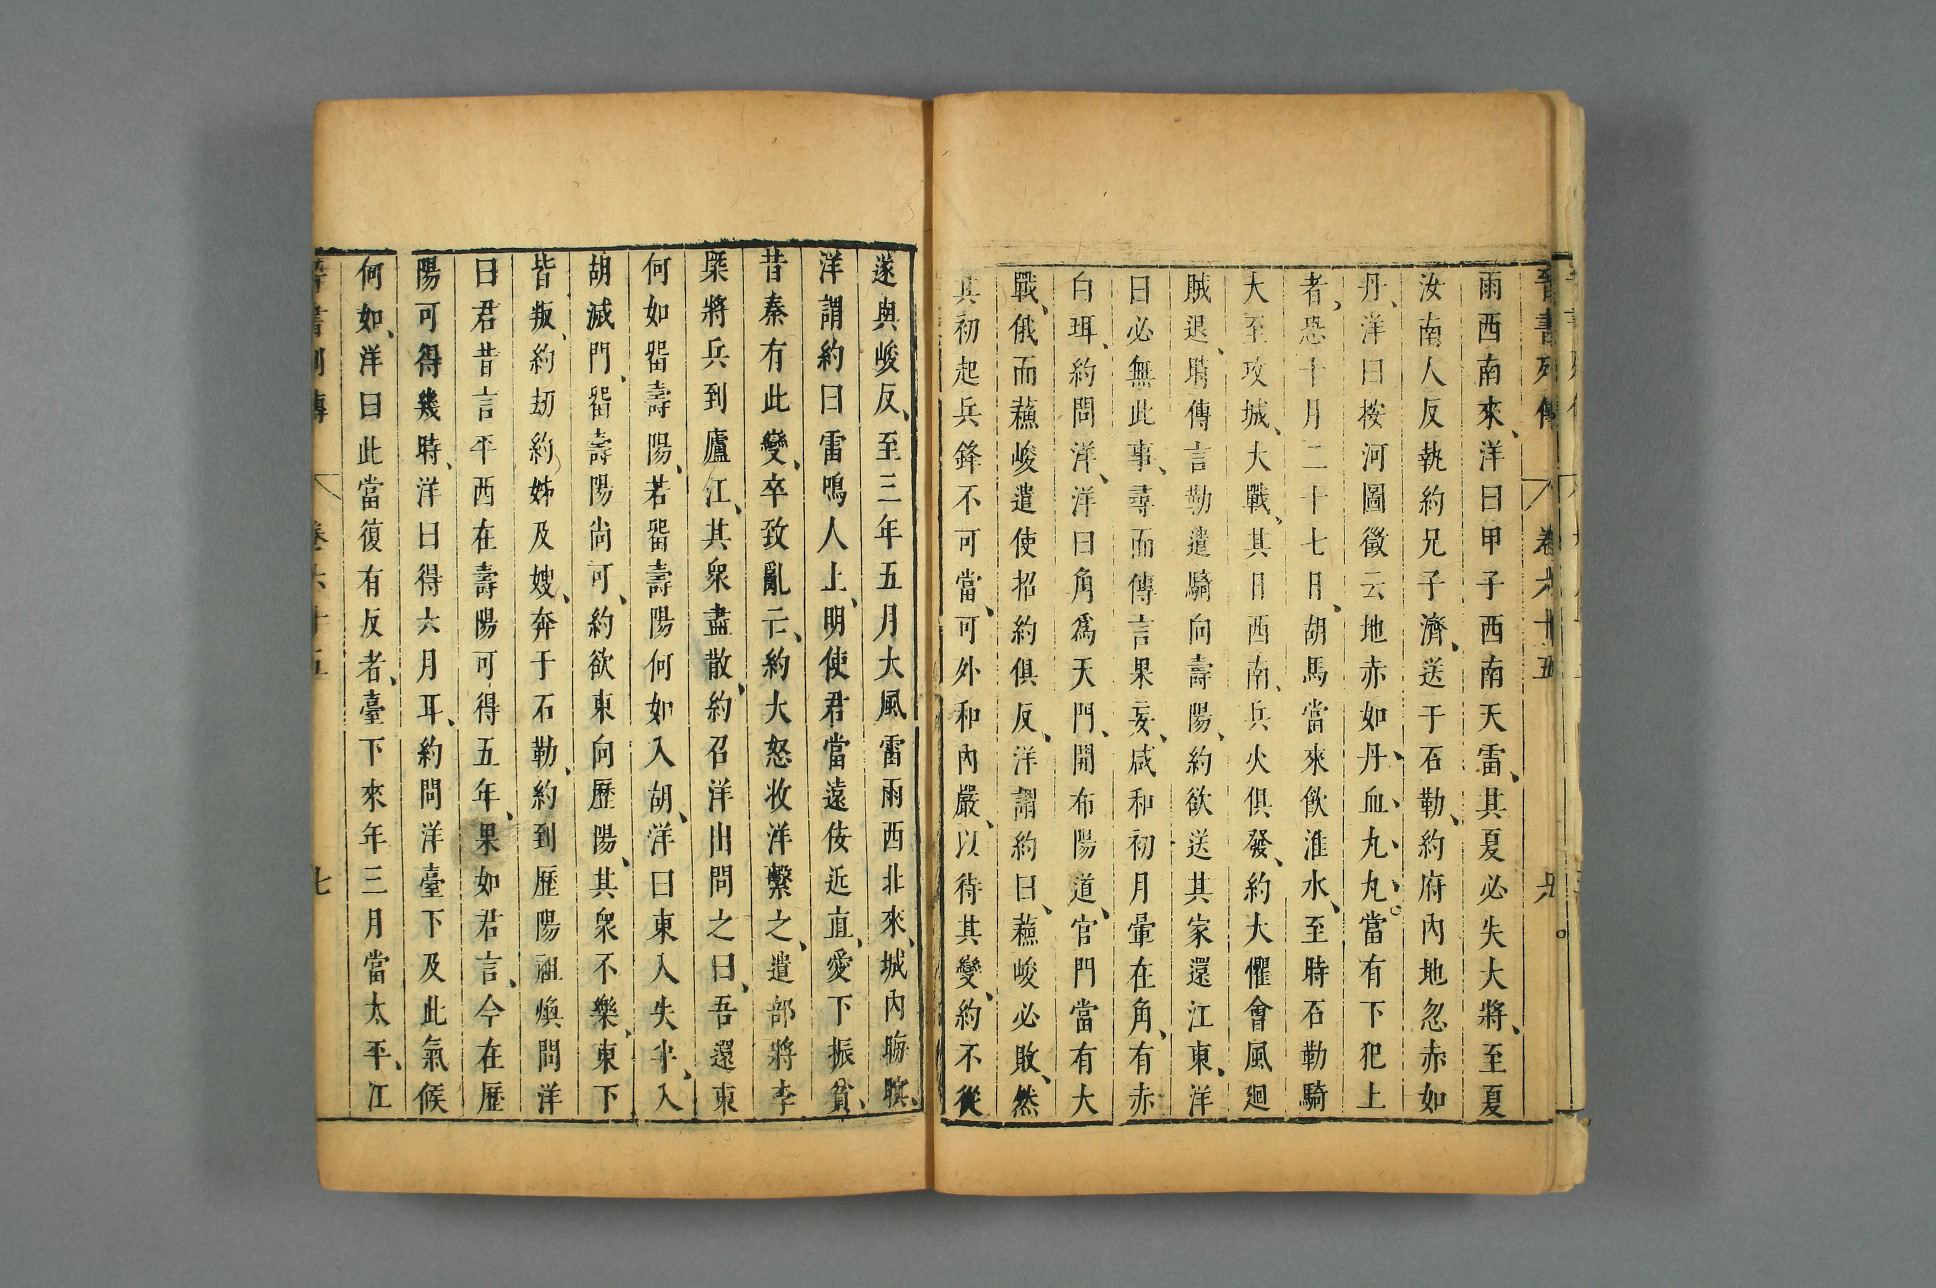 晉書列傳 卷六十五
雨西南來、洋曰甲子西南天雷、其夏必失大將、至夏
汝南人反執約兄子濟、送于石勒、約府內地忽赤如
丹、洋曰按河圖徵云地赤如丹、血丸、丸、當有下犯上
者、恐十月二十七日、胡馬當來飲淮水、至時石勒騎
大至攻城、大戰、其日西南、兵火俱發、約大懼會風迴
賊退、時傳言勒遣騎向壽陽、約欲送其家還江東、洋
曰必無此事、尋而傳言果妄、咸和初月暈在角、有赤
白珥、約問洋、洋曰角爲天門、開布陽道、官門當有大
戰、俄而蘓峻遣使招約俱反、洋謂約曰、蘓峻必敗、然
其初起兵鋒不可當、可外和內嚴、以待其變、約不從
遂與峻反、至三年五月大風雷雨西北來、城內晦瞑、
洋謂約曰雷鳴人上、明使君當遠佞近直、愛下振貧、
昔秦有此變、卒致亂亡、約大怒收洋繫之、遣部將李
㮣將兵到廬江、其衆盡散、約召洋出問之曰、吾還東
何如畱壽陽、若畱壽陽何如入胡、洋曰東入失半、入
胡滅門、畱壽陽尙可、約欲東向歷陽、其衆不樂、東下
皆叛、約劫約姊及嫂、奔于石勒、約到歷陽祖煥問洋
曰君昔言平西在壽陽可得五年、果如君言、今在歷
陽可得幾時、洋曰得六月耳、約問洋臺下及此氣候
何如、洋曰此當復有反者、臺下來年三月當太平、江
晉書列傳 卷六十五 七